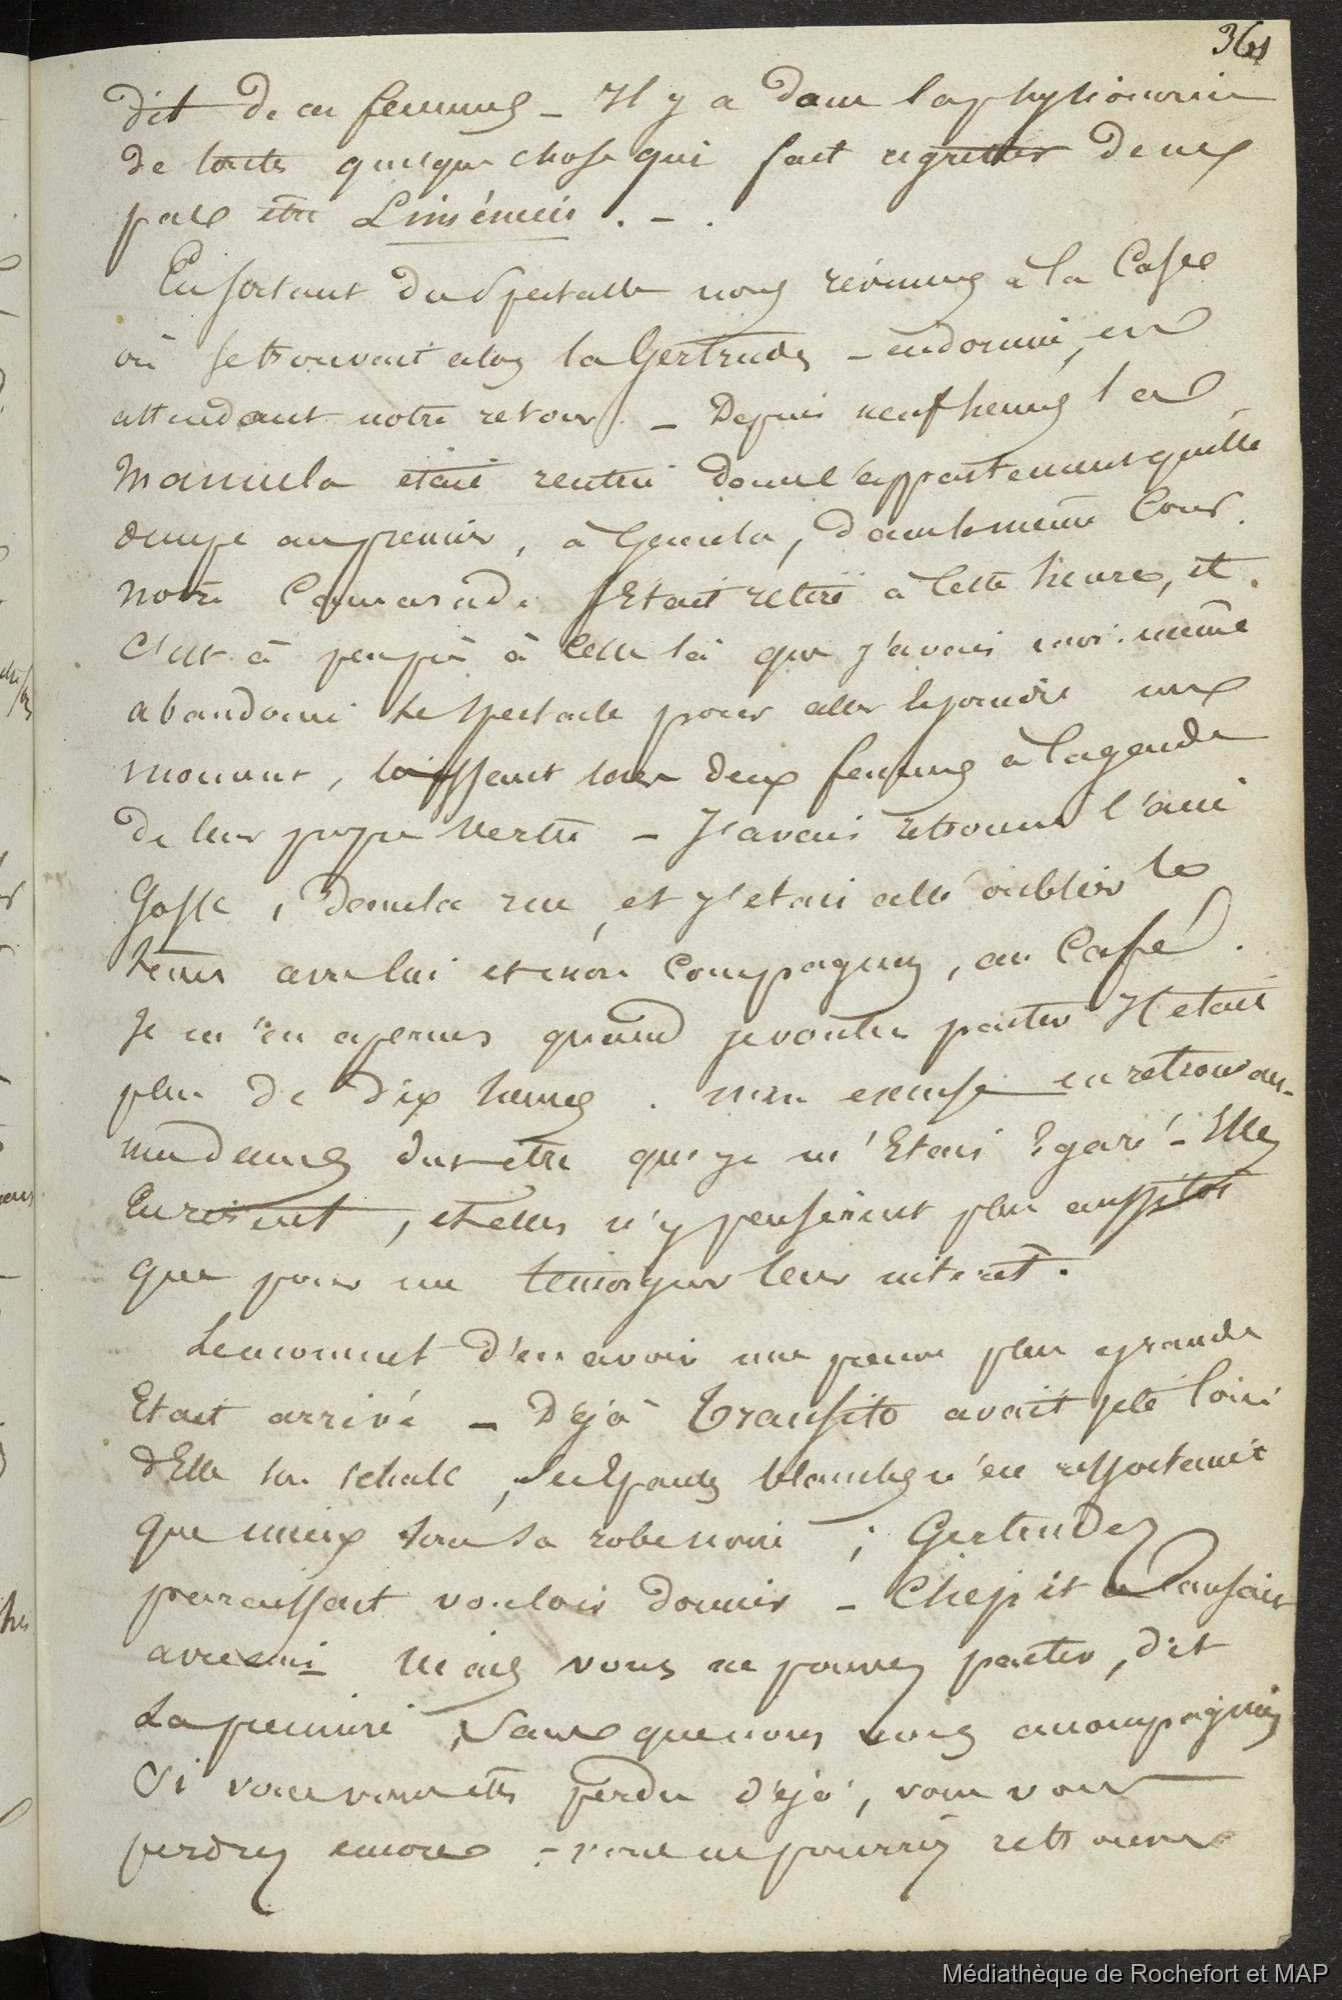 361
dit de ces femmes _ Il y a dans la physionomie
de toutes quelque chose qui fait regretter de ne
pas être Liménien . _ .
En sortant du spectacle nous revinmes à la Case
où se trouvait alors la Gertrudes _ endormie, en
attendant notre retour. _ Depuis neuf heures la
Manuela était rentrée dans l'appartement quelle
occupe au premier, à Gauche, dans la même Cour.
Notre Camarade s'Etait retiré à cette heure, et
c'est à peu près à celle là que j'avais moi-même
abandonné le spectacle pour aller le joindre un
moment, laissant les deux femmes à la garde
de leur propre vertu _ J'avais retrouvé l'ami
Gosse, dans la rue, et j'étais allé oublier le
tems avec lui et mon Compagnon, au Café.
Je m'en aperçus quand je voulus partir Il etait
plus de dix heures . Mon excuse en retrouvant
mes dames dut etre que je m'Etais Egaré _ Elles
En rirent, et elles n'y penserent plus aussitot
que pour me temoigner leur interet.
Le moment d'en avoir une preuve plus grande
Etait arrivé _ Déjà Transito avait jeté loin
d'Elle son schall, ses Epaules blanches n'en ressortaient
que mieux sous sa robe noire ; Gertrudes
paraissait vouloir dormir _ Chepita dansait
avec moi _ Mais vous ne pouvez partir, dit
la première, sans que nous vous accompagnions
Si vous vous êtes perdu déjà, vous vous
perdrez encore _ vous ne pourrez retrouver
Médiathèque de Rochefort et MAP